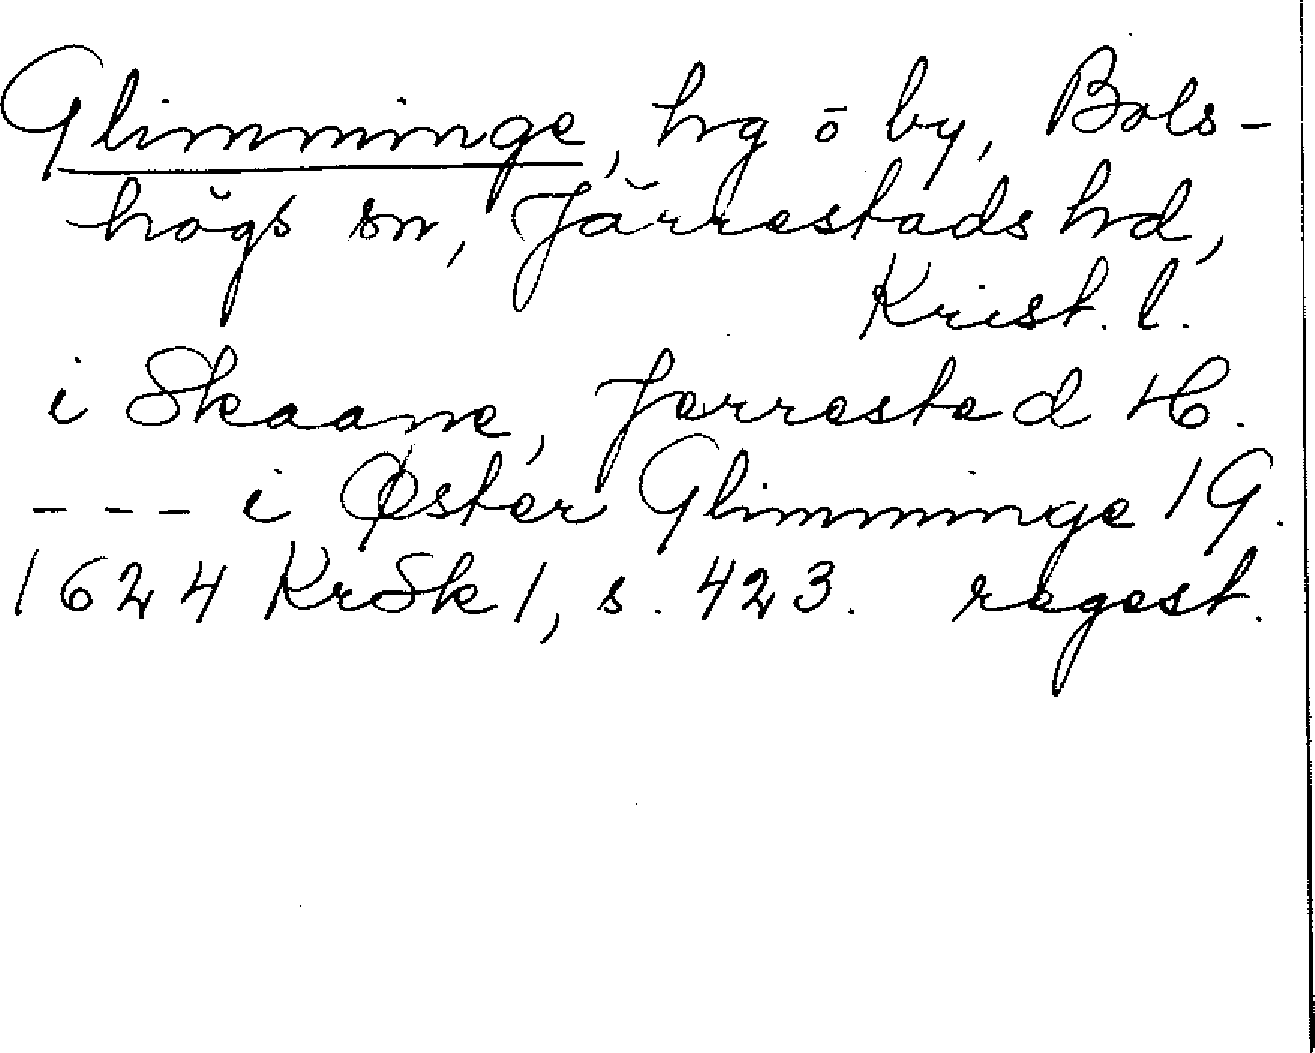 Glimminge, hg ö by, Bols-
högs sn, Järrestads hd,
Krist. l.
i Skaane, Jerrested H.
--- i Øster Glimminge 1 G.
1624 KrSk 1, s. 423. regest.